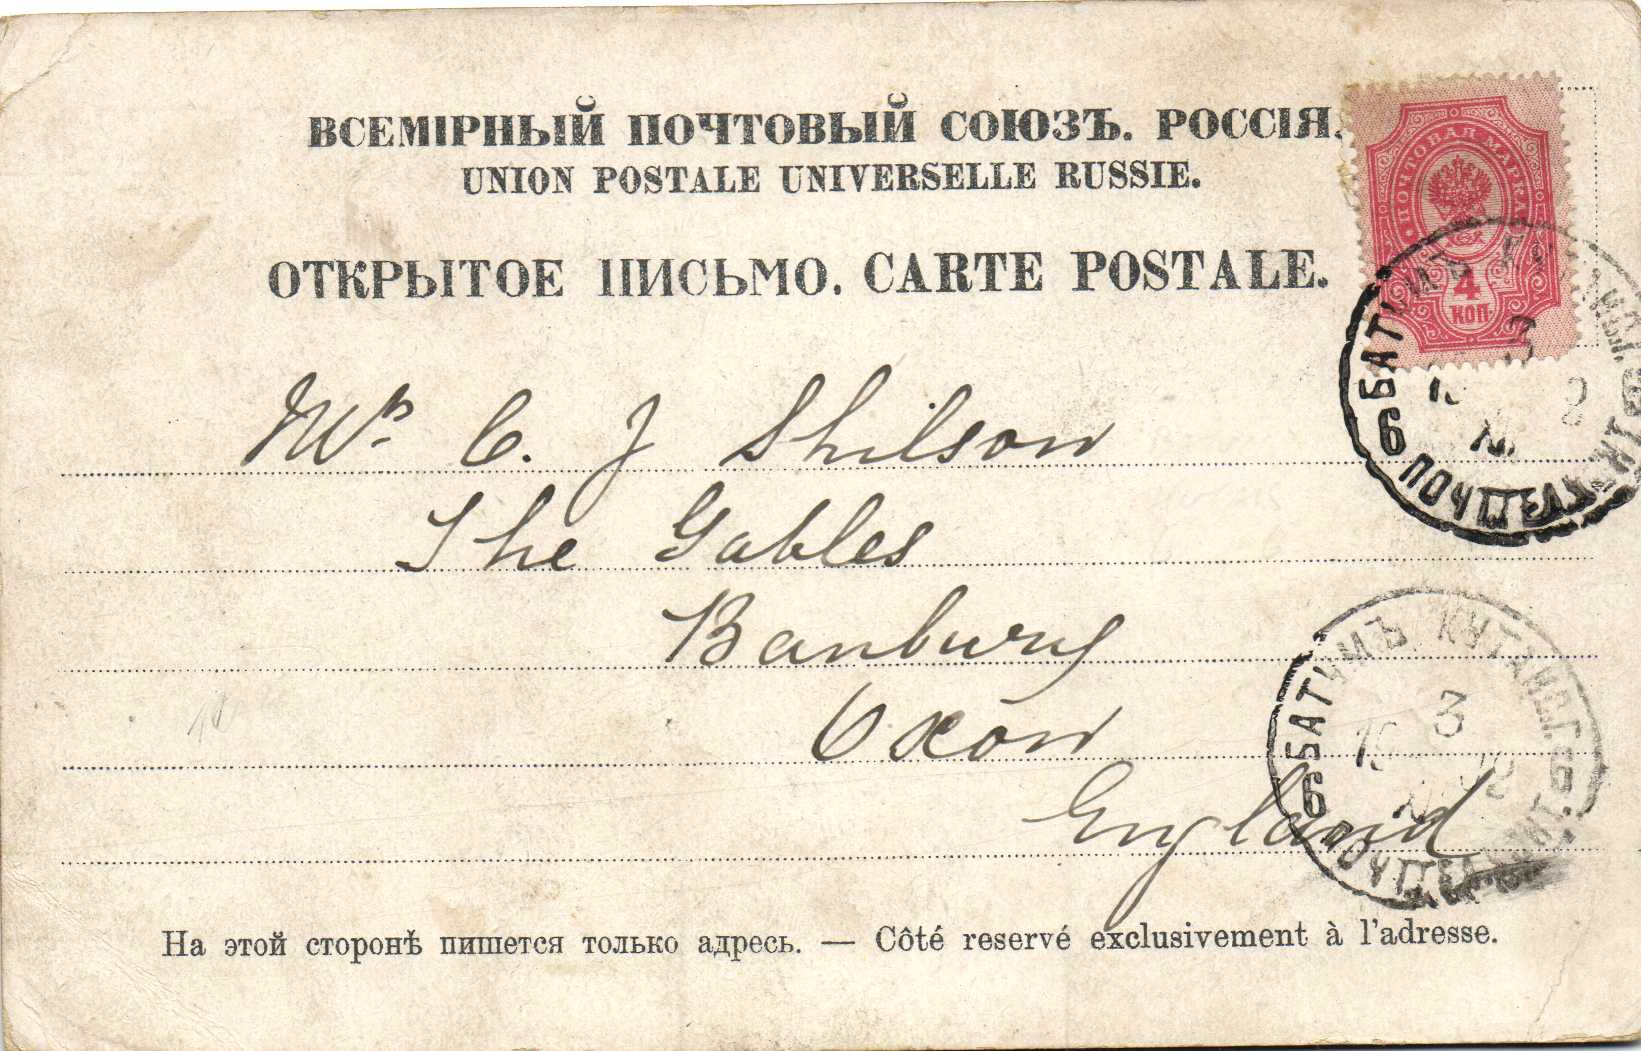 ВСЕМІРНЫЙ ПОЧТОВЫЙ СОЮЗЪ. РОССІЯ.
UNION POSTALE UNIVERSELLE RUSSIE.
ОТКРЫТОЕ ПИСЬМО. CARTE POSTALE.
ПОЧТОВАЯ МАРКА
4
КОП.
БАТУМЪ
3
6
Mrs C. J Shilson
The Gables
Banbury
Oxon
England
БАТУМЪ КУТАИС.Г.
3
6
На этой сторонѣ пишется только адресъ. — Côté reservé exclusivement à l'adresse.